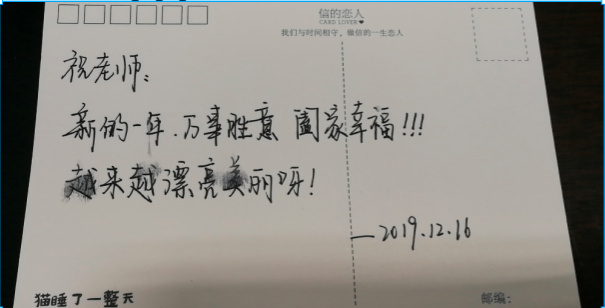 信的恋人
CARD LOVER
我们与时间相守，做信的一生恋人
祝老师：
新的一年，万事胜意 阖家幸福！！！
越来越漂亮美丽呀！
—2019.12.16
猫睡了一整天
邮编：